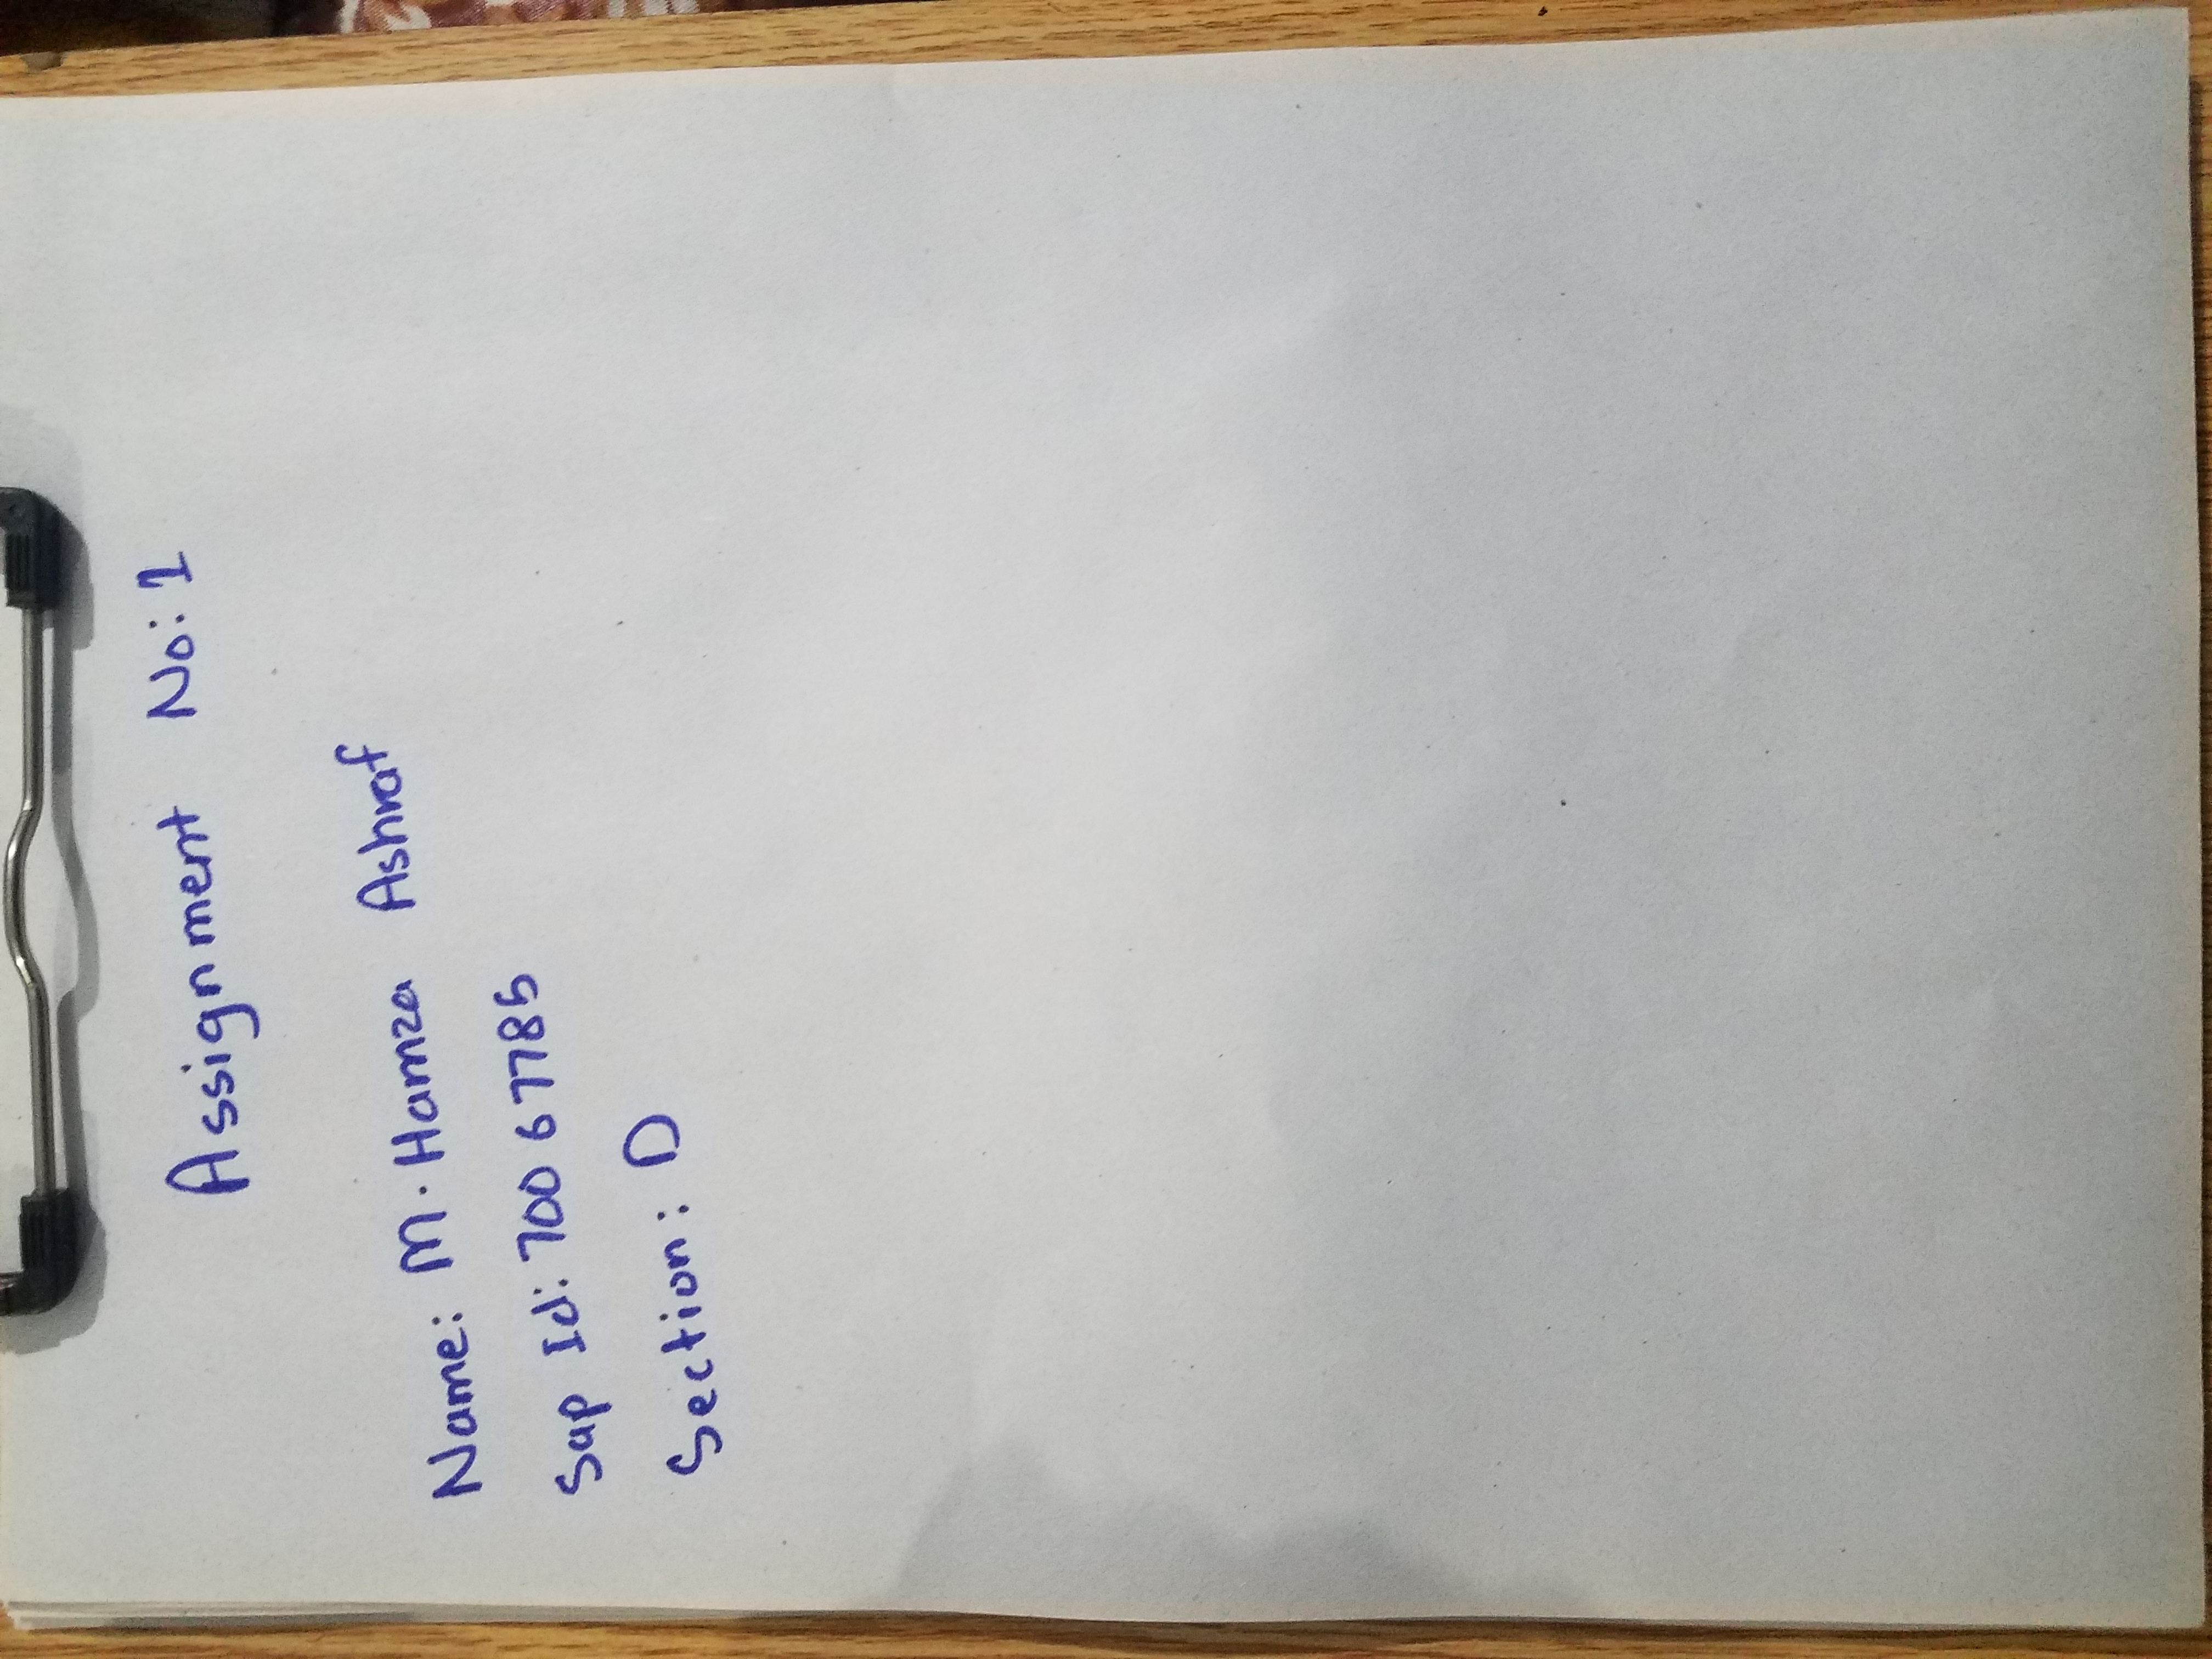 Assignment No: 1
Name: M. Hamza Ashraf
Sap Id: 70067785
Section: D